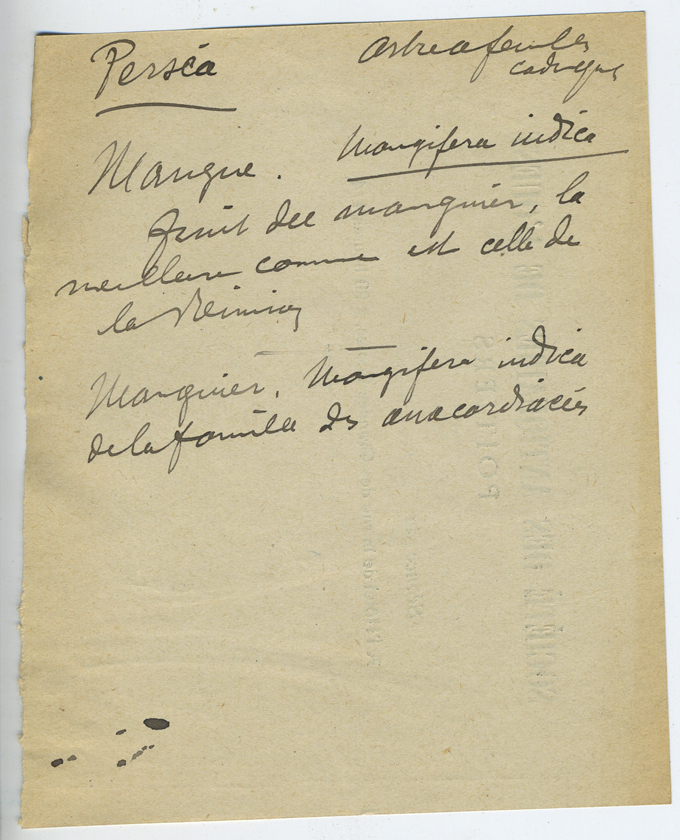 Perséa
Arbre a feuilles
caduques
Mangue. Mangifera indica
fruit du manguier, la
meilleure connue est celle de
la Réunion
Manguier. Mangifera indica
de la famille des anacardiacées